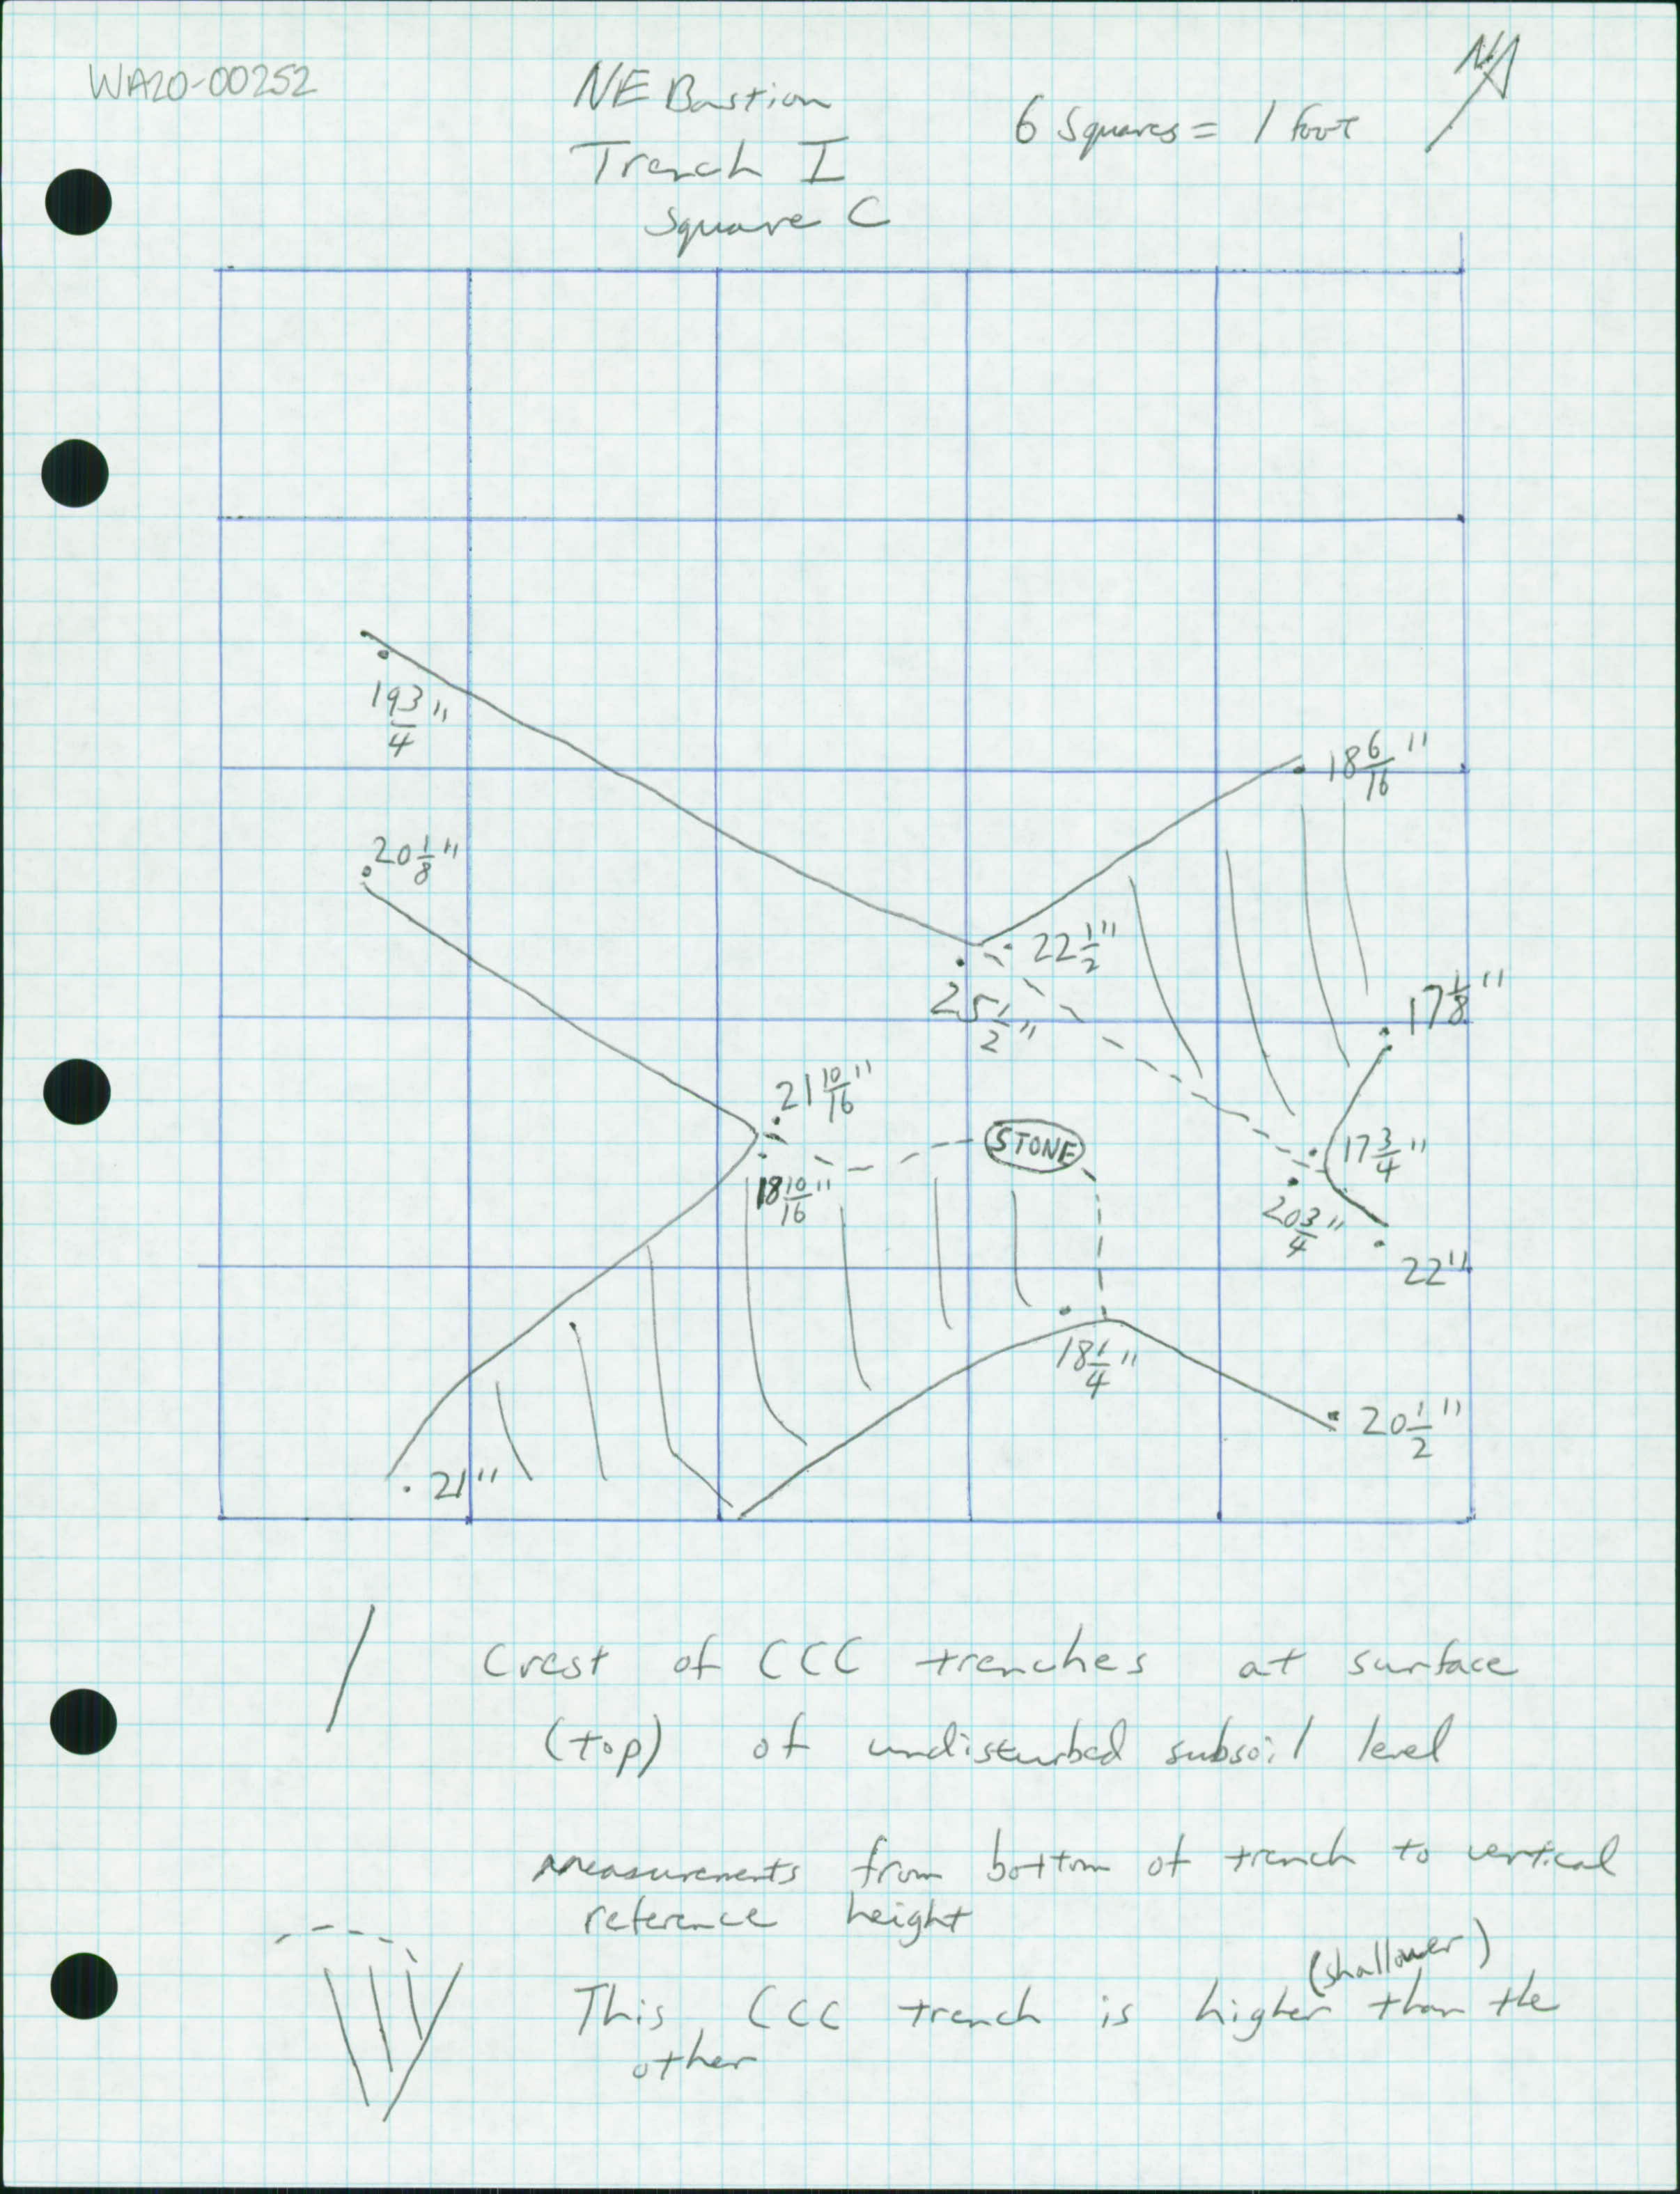 WA20-00252
NE Bastion
Trench I
Square C
6 Squares = 1 foot
N
19 3/4"
18 6/16"
20 1/8"
22 1/2"
25 1/2"
17 1/8"
21 10/16"
STONE
17 3/4"
18 10/16"
20 3/4"
22"
18 1/4"
20 1/2"
21"
Crest of CCC trenches at surface
(top) of undisturbed subsoil level
measurements from bottom of trench to vertical
reference height
(shallower)
This CCC trench is higher than the
other